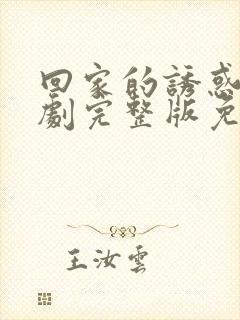 回家的誘惑
劇完整版免
王汝雲